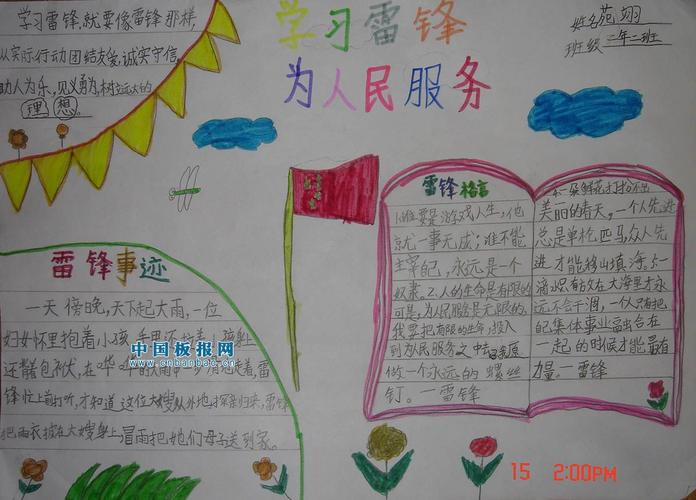 学习雷锋
为人民服务
姓名苑翊
班级二年二班
学习雷锋,就要像雷锋那样,
从实际行动团结友爱,诚实守信,
助人为乐,见义勇为,树远大的
理想
雷锋事迹
一天傍晚,天下起大雨,一位
妇女怀里抱着小孩,手里还
还背着包袱,在
锋忙上前打听,才知道这位大嫂从外地探亲归来,雷锋
把雨衣披在大嫂身上,冒雨把她们母子送到家。
中国板报网
www.cnbanbao.cn
雷锋格言
1.谁要是游戏人生,他
就一事无成;谁不能
主宰自己,永远是一个
奴隶。2.人的生命是有限的
可是,为人民服务是无限的,
我要把有限的生命,投入
到为民服务之中去
做一个永远的螺丝
钉。—雷锋
4.一朵鲜花打扮不出
美丽的春天,一个人先进
总是单枪匹马,众人先
进才能移山填海。5.一
滴水只有放在大海里才永
远不会干涸,一个人只有把
和集体事业融合在
一起的时候才能最有
力量—雷锋
15 2:00PM